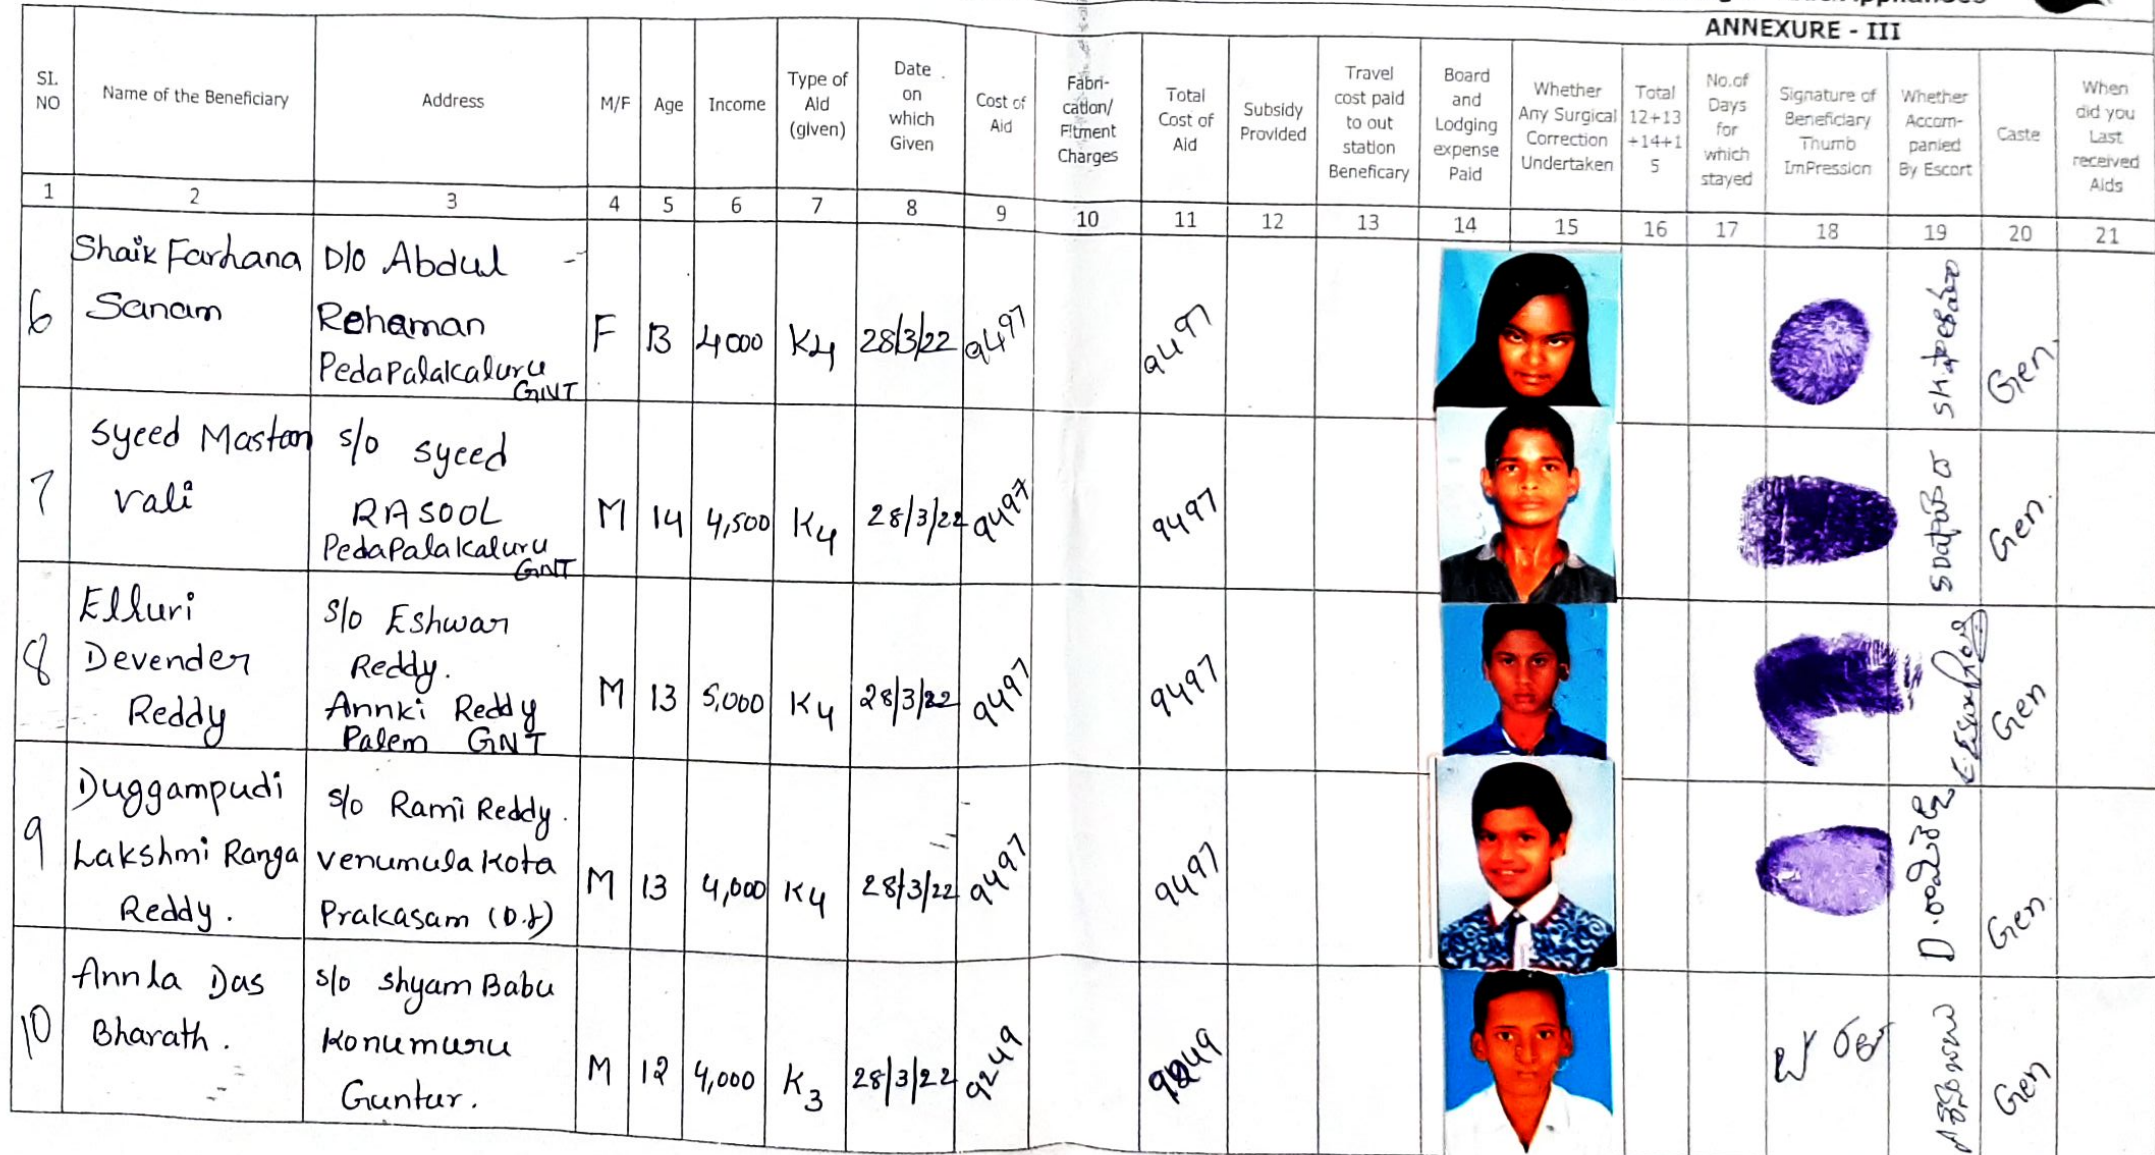 ANNEXURE - III
SI. NO
Name of the Beneficiary
Address
M/F
Age
Income
Type of Aid (given)
Date on which Given
Cost of Aid
Fabri-cation/ Fitment Charges
Total Cost of Aid
Subsidy Provided
Travel cost paid to out station Beneficary
Board and Lodging expense Paid
Whether Any Surgical Correction Undertaken
Total 12+13 +14+1 5
No.of Days for which stayed
Signature of Beneficiary Thumb ImPression
Whether Accom-panied By Escort
Caste
When did you Last received Aids
1 2 3 4 5 6 7 8 9 10 11 12 13 14 15 16 17 18 19 20 21
6
Shaik Farhana
Sanam
D/o Abdul
Rehaman
Pedapalakaluru
GNT
F 13 4000 K4 28/3/22 9497 9497
Gen.
7
Syeed Mastan
vali
s/o syeed
RASOOL
Pedapalakaluru
GNT
M 14 4,500 K4 28/3/22 9497 9497
Gen.
8
Elluri
Devender
Reddy
s/o Eshwar
Reddy.
Annki Reddy
Palem GNT
M 13 5,000 K4 28/3/22 9497 9497
Gen
9
Duggampudi
Lakshmi Ranga
Reddy.
s/o Rami Reddy.
venumula Kota
Prakasam (D.t)
M 13 4,000 K4 28/3/22 9497 9497
Gen.
10
Annla Das
Bharath.
s/o shyam Babu
Konumuru
Guntur.
M 12 4,000 K3 28/3/22 9249 9249
Gen